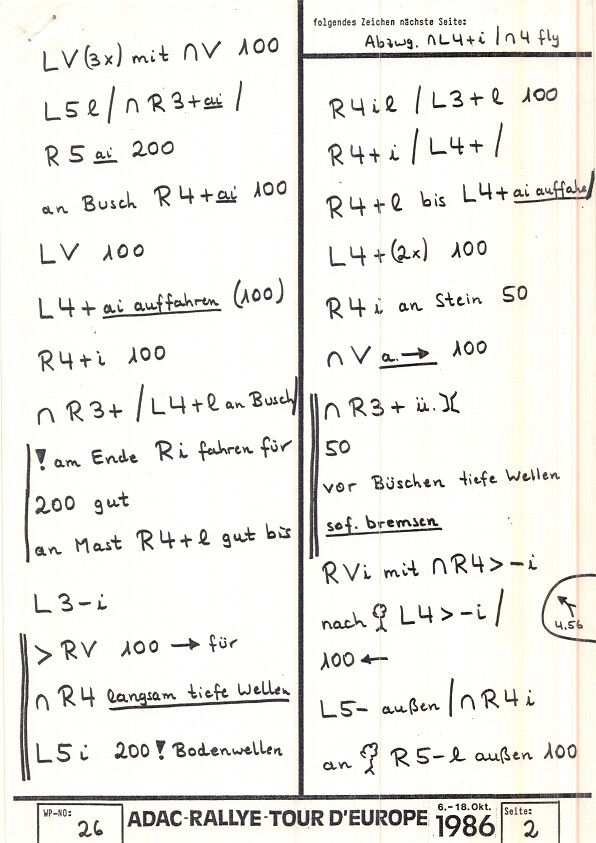 LV(3x) mit ∩V 100
L5l/∩R3+ai/
R5 ai 200
an Busch R4+ai 100
LV 100
L4+ ai auffahren (100)
R4+i 100
∩R3+/L4+l an Busch/
! am Ende Ri fahren für
200 gut
an Mast R4+l gut bis
L3-i
> RV 100 → für
∩R4 langsam tiefe Wellen
L5i 200! Bodenwellen
folgendes Zeichen nächste Seite:
Abzwg. ∩L4+i/∩4 fly
R4il /L3+l 100
R4+i/L4+/
R4+l bis L4+ai auffahre/
L4+(2x) 100
R4i an Stein 50
∩V a.→ 100
∩R3+ ü.)(
50
vor Büschen tiefe Wellen
sof. bremsen
RVi mit ∩R4>-i
nach L4>-i/
4.56
100←
L5- außen/∩R4i
an R5-l außen 100
WP-NO: 26
ADAC-RALLYE-TOUR D'EUROPE
6.-18.Okt. 1986
Seite: 2